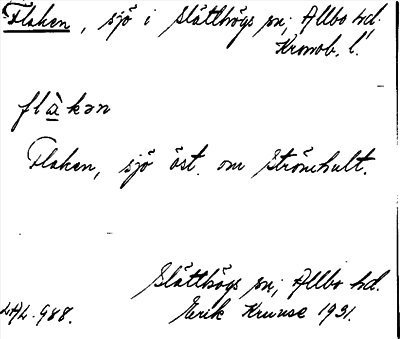 Flaken, sjö i Slätthögs sn; Allbo hd.
Kronob. l.
flàkən
Flaken, sjö öst. om Strömhult.
Slätthögs sn; Allbo hd.
LAL. 988. Erik Kruuse 1931.